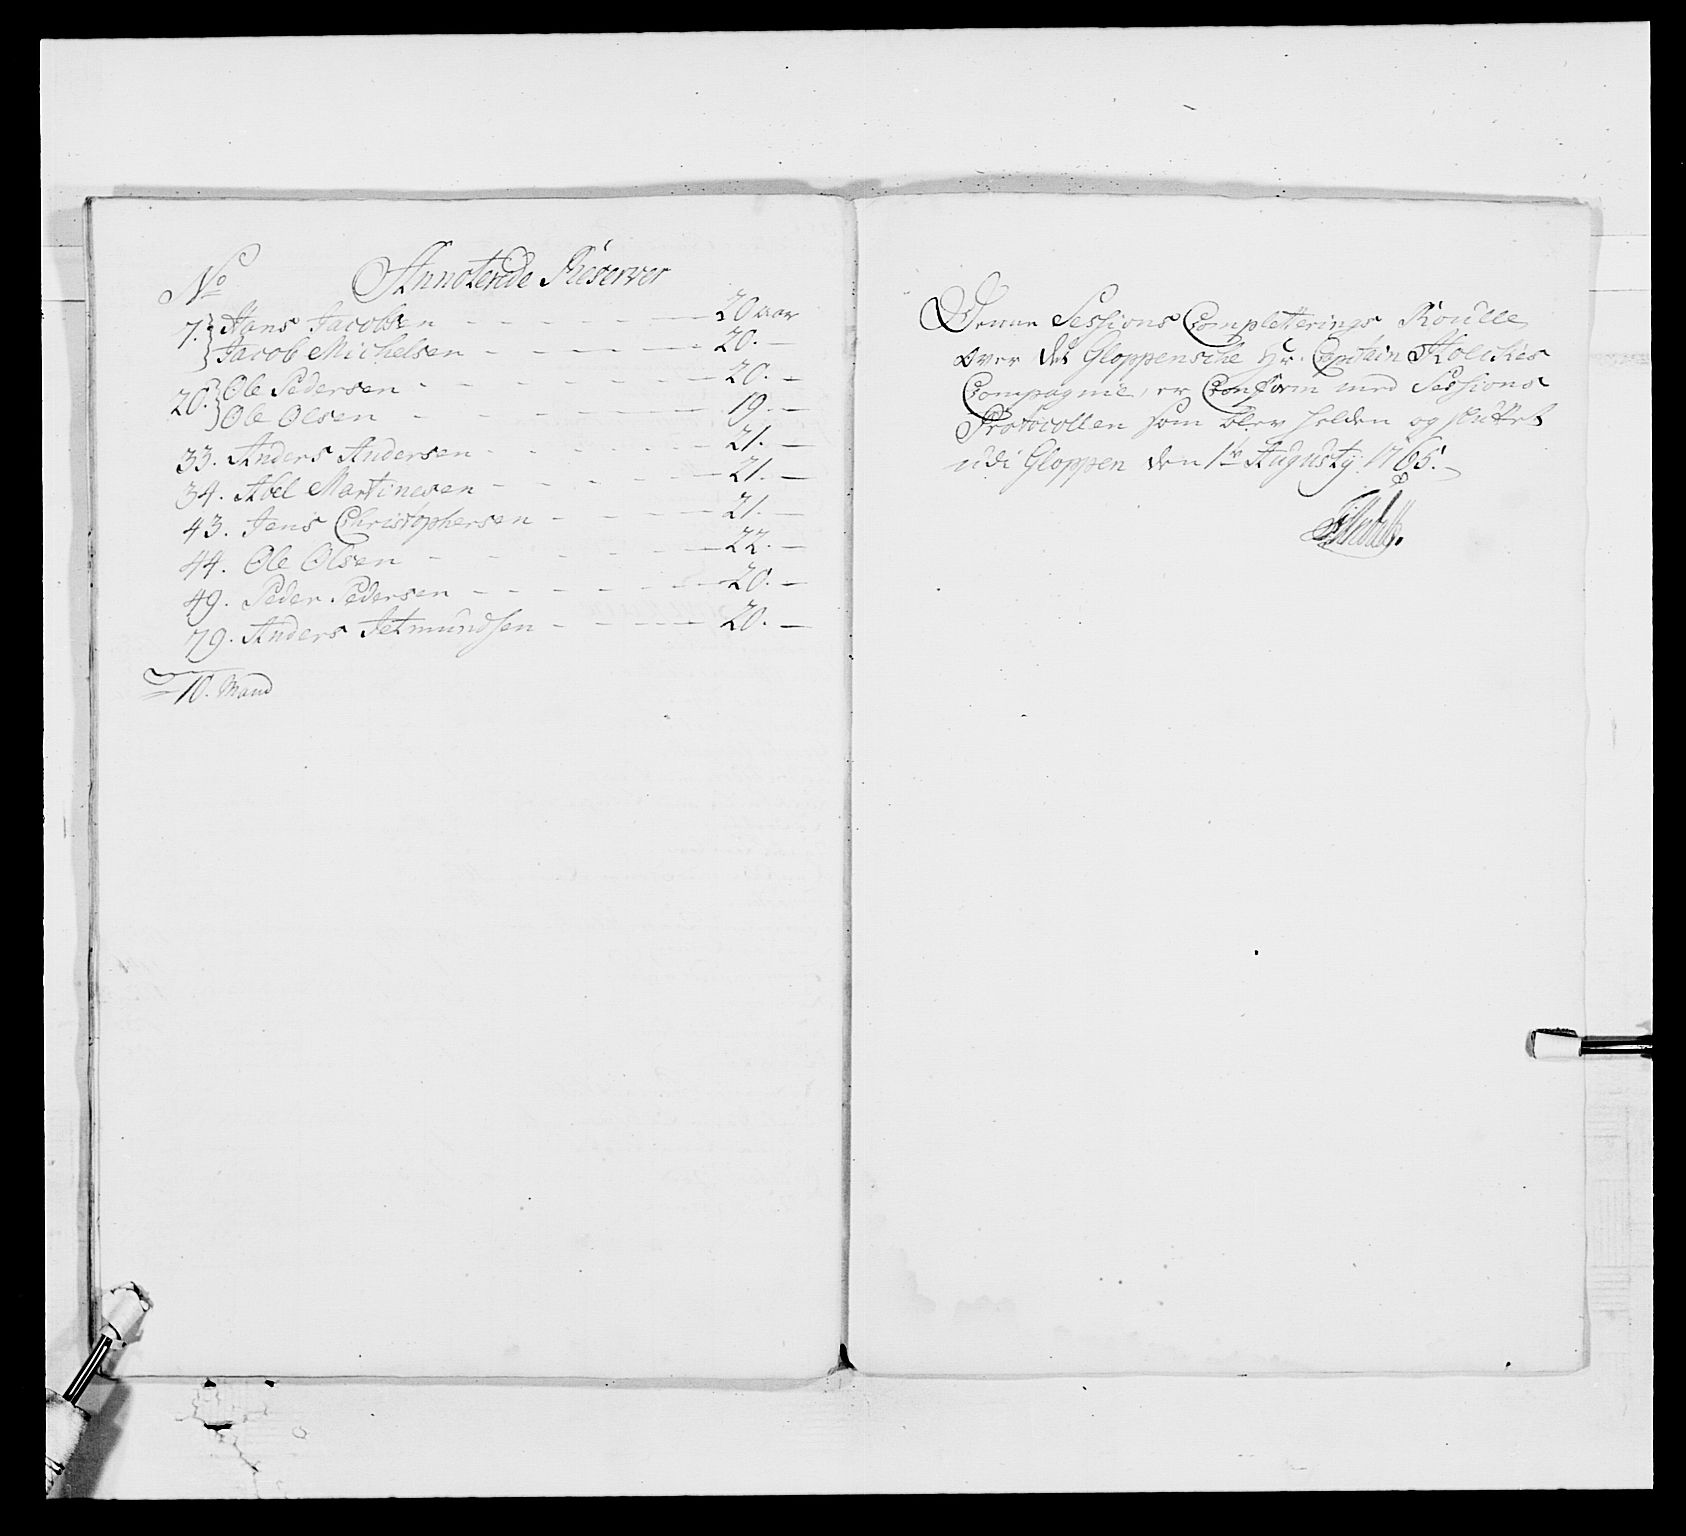 No Annoterede Reserver
7. Hans Jacobsen 20 aar
Jacob Michelsen 20.
20. Ole Pedersen 20.
Ole Olsen 19.
33. Anders Andersen 21.
34. Abel Martinusen 21.
43. Jens Christophersen 21.
44. Ole Olsen 22.
49. Peder Pedersen 20.
79. Anders Jetmundsen 20.
10. Mand
Denne Sessions Completterings Roulle
over det Gloppenske Hr. Capitain
Compagnie, er Conform med Sessions
Protocollen som blev holden og sluttet
udi Gloppen den 1te Augusty 1765.